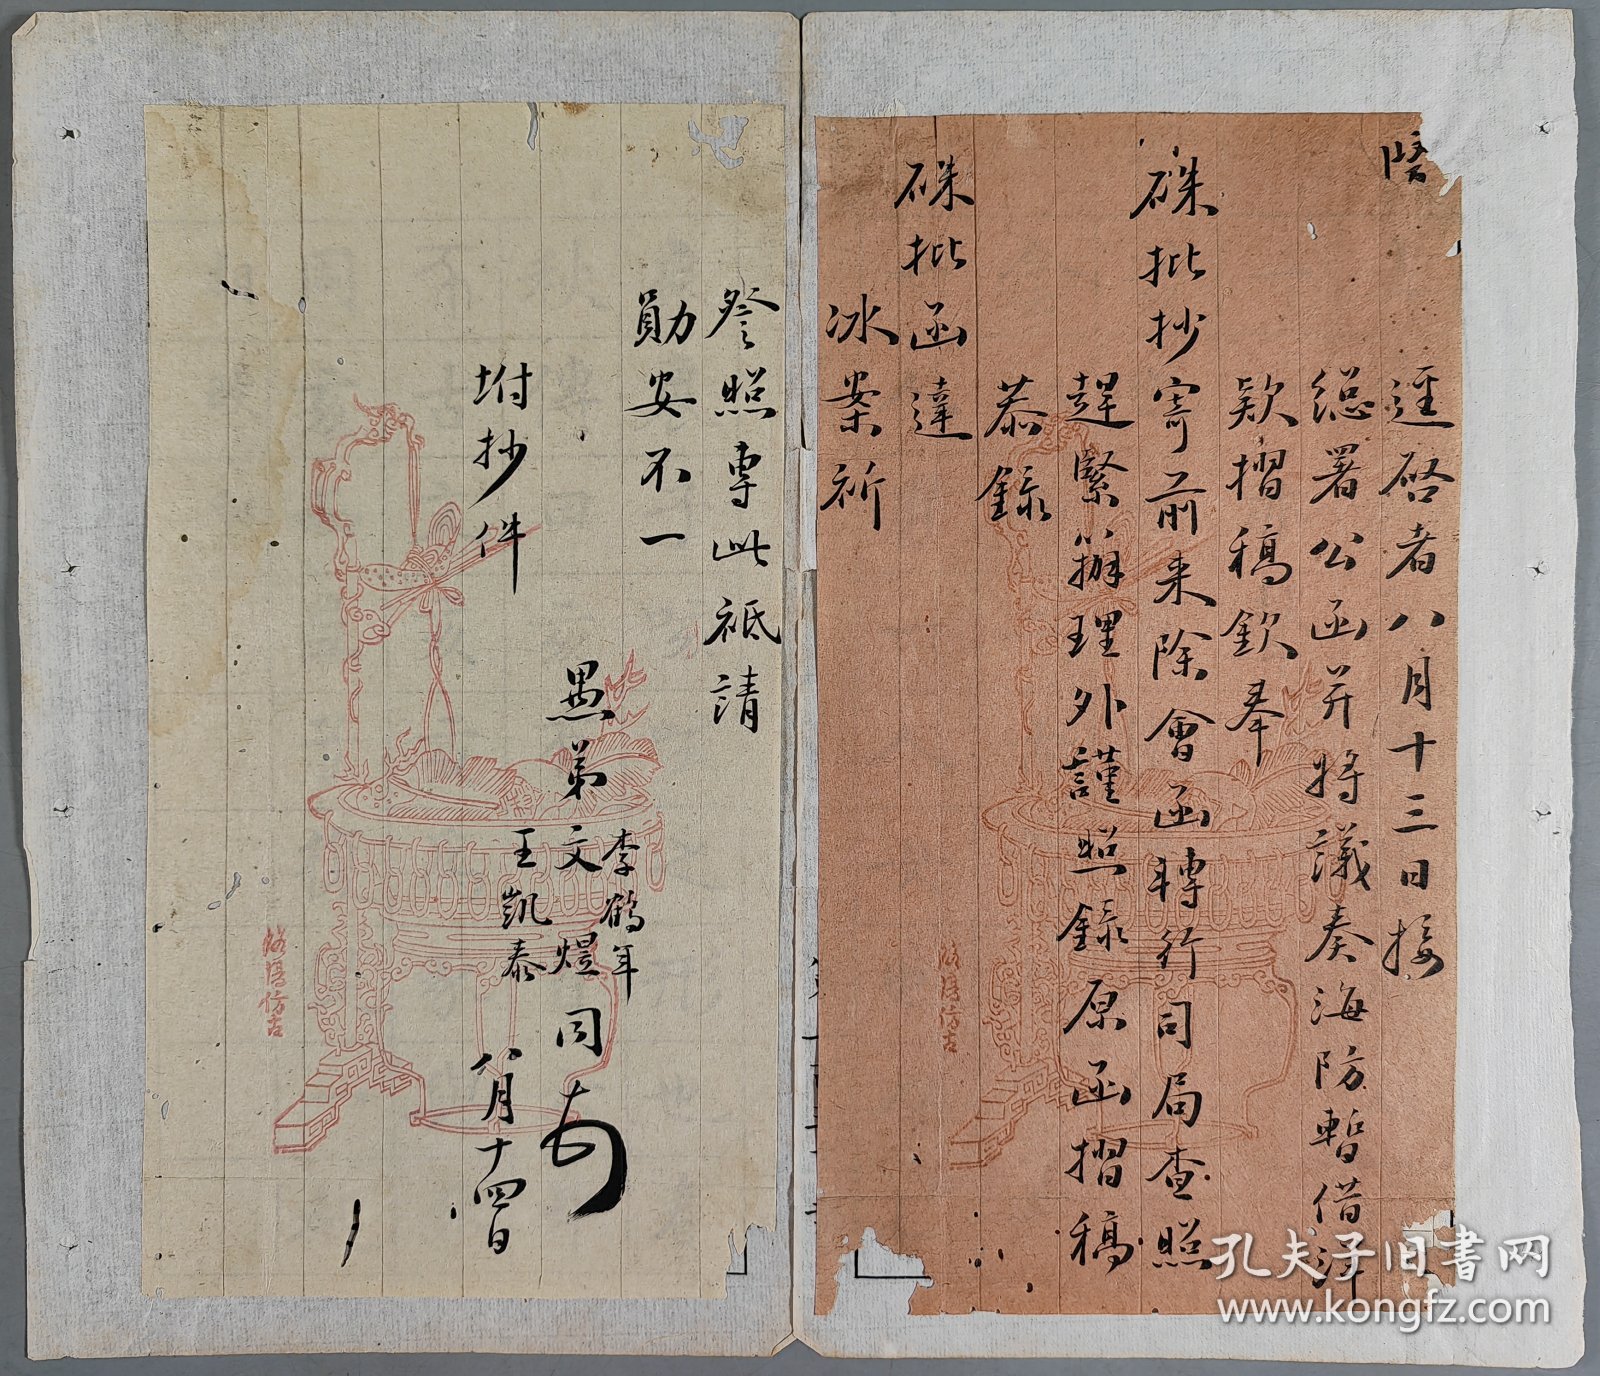 逕啓者八月十三日接
總署公函并將議奏海防暫借洋
欵摺稿欽奉
硃批抄寄前来除會函轉行司局查照
趕緊籌辦理外謹照錄原函摺稿
恭錄
硃批函達
冰案祈
詧照專此祗請
勛安不一
愚弟李鶴年文煜王凱泰同頓
坿抄件
八月十四日
仿古
仿古
孔夫子旧书网
www.kongfz.com